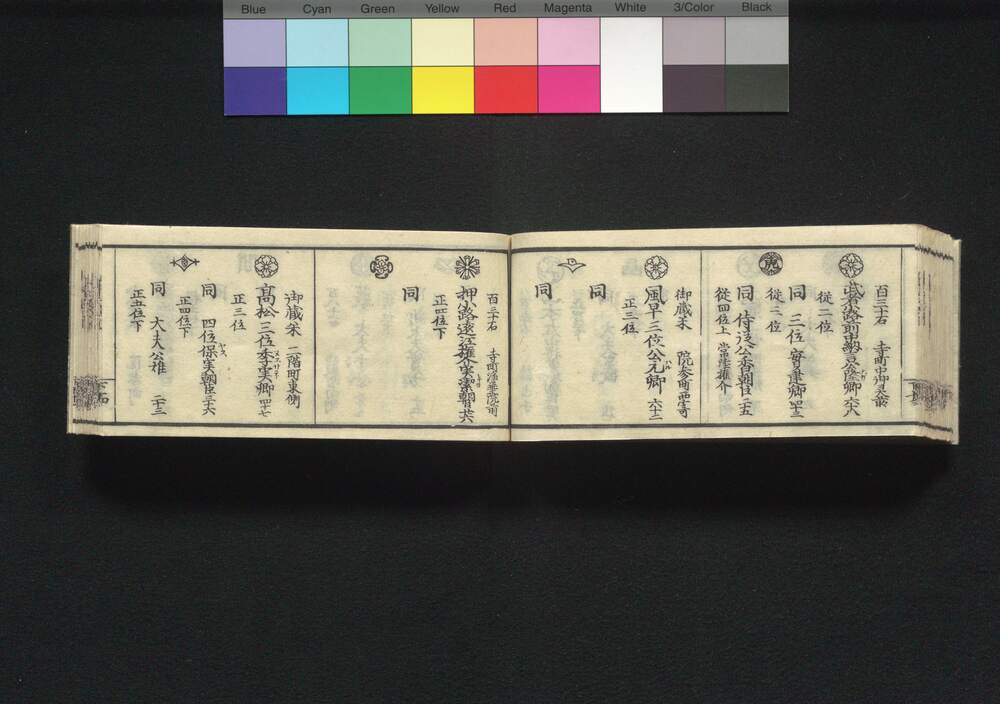 Blue Cyan Green Yellow Red Magenta White 3/Color Black
百三十石 寺町中御灵前
武者小路前中納言公隆卿 六十八
従二位
同 三位実建卿 四十三
従三位
同 侍従公香朝臣 二五
従四位上 常陸権介
御蔵米 院参町西
風早三位公元卿 六十二
正三位
同
同
百三十石 寺町
押小路遠江権介実潔朝臣 廿六
正四位下
同
御蔵米 二階町東側
高松三位季実卿 四十七
正三位
同 四位保実朝臣 三十六
正四位下
同 大夫公雅 二十三
正五位下